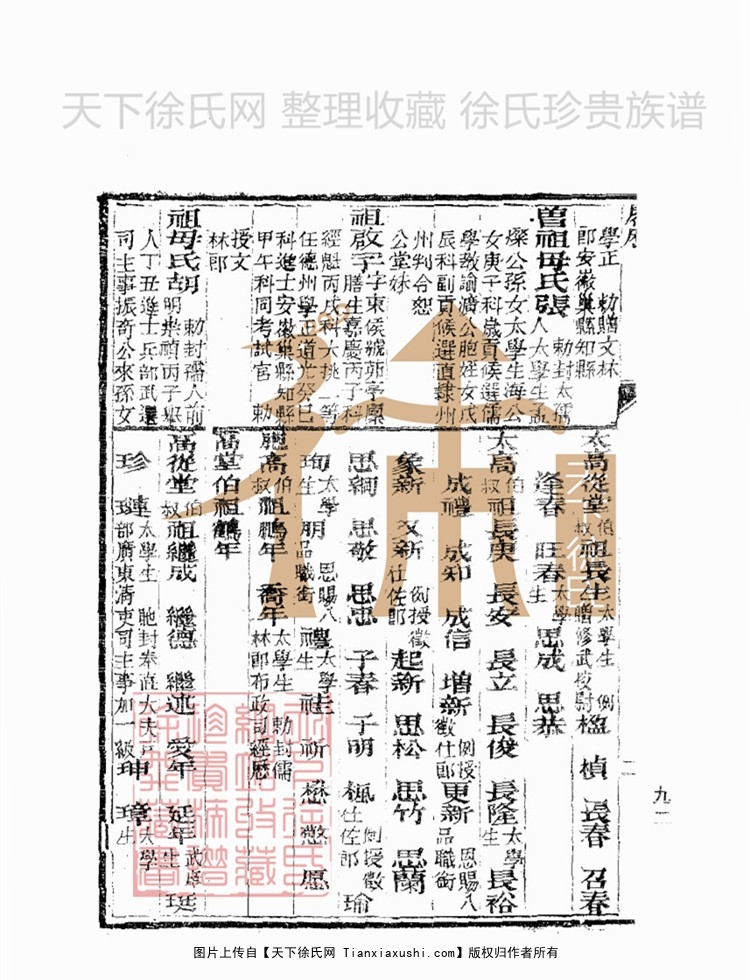 天下徐氏网 整理收藏 徐氏珍贵族谱
學正 勅贈文林
郎安徽巢縣知縣
曾祖母氏張 勅封太孺
人太學生孟
燦公孫女太學生海公
女庚子科歲貢候選儒
學教諭濱公胞姪女戊
辰科副貢候選直隸州
州判合恕
公堂妹
祖啟子字東侯號郭予廩
膳生嘉慶丙子科
經魁丙戌科大挑一等
任德州學正道光癸巳
科進士安徽巢縣知縣
甲午科同考試官 勅
授文
林郎
祖母氏胡 勅封孺人前
明崇禎丙子舉
人丁丑進士兵部武選
司主事振奇公來孫女
太高從堂伯叔祖長生太學生 例贈修武校尉 楹 楨 長春 召春
逢春 旺春太學生 思成 思恭
太高伯叔祖長庚 長安 長立 長俊 長隆太學生 長裕
成禮 成知 成信 增新例授徵仕郎 更新恩賜八品職銜
象新 文新例授徵仕佐郎 起新 思松 思竹 思蘭
思綱 思敬 思忠 子春 子明 楓例授徵仕佐郎 瑜
珣太學生 朋恩賜八品職銜 禮太學生 社 祈 懋 憼 愿
廳高伯叔祖鵬年 喬年太學生 勅封儒林郎布政司經歷
高堂伯祖鶴年
高從堂伯叔祖繼成 繼德 繼述 愛年 延年武庠生 珽
珍 璉太學生 馳封奉直大夫戶部廣東清吏司主事加一級 珅 璋太學生
九二
图片上传自【天下徐氏网 Tianxiaxushi.com】版权归作者所有